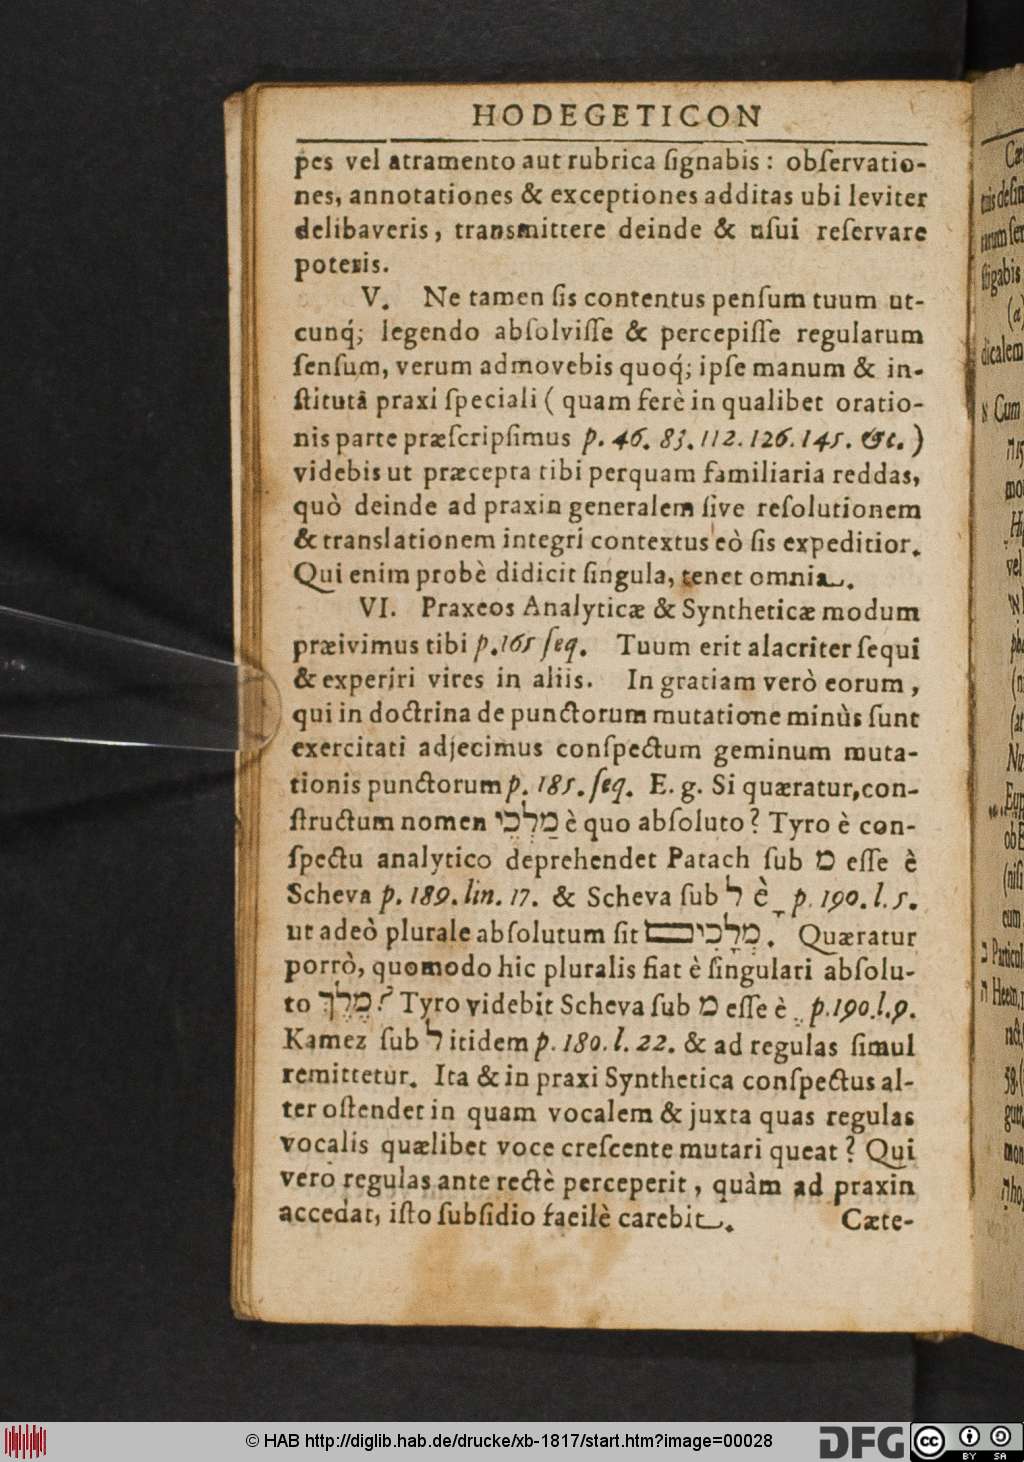 HODEGETICON
pes vel atramento aut rubrica ſignabis : obſervatio-
nes, annotationes & exceptiones additas ubi leviter
delibaveris, transmittere deinde & uſui reſervare
poteris.
V. Ne tamen ſis contentus penſum tuum ut-
cunq́; legendo abſolviſſe & percepiſſe regularum
ſenſum, verum admovebis quoq́; ipſe manum & in-
ſtitutâ praxi ſpeciali ( quam ferè in qualibet oratio-
nis parte præſcripſimus p. 46. 83. 112. 126. 145. &c. )
videbis ut præcepta tibi perquam familiaria reddas,
quò deinde ad praxin generalem ſive reſolutionem
& translationem integri contextus eò ſis expeditior.
Qui enim probè didicit ſingula, tenet omnia.
VI. Praxeos Analyticæ & Syntheticæ modum
præivimus tibi p. 165 ſeq. Tuum erit alacriter ſequi
& experiri vires in aliis. In gratiam verò eorum,
qui in doctrina de punctorum mutatione minùs ſunt
exercitati adjecimus conſpectum geminum muta-
tionis punctorum p. 185. ſeq. E. g. Si quæratur, con-
ſtructum nomen מַלְכֵי è quo abſoluto? Tyro è con-
ſpectu analytico deprehendet Patach ſub מ eſſe è
Scheva p. 189. lin. 17. & Scheva ſub ל è ָ p. 190. l. 5.
ut adeò plurale abſolutum ſit מְלָכִים. Quæratur
porrò, quomodo hic pluralis fiat è ſingulari abſolu-
to מֶלֶךְ? Tyro videbit Scheva ſub מ eſſe è ֶ p. 190. l. 9.
Kamez ſub ל itidem p. 180. l. 22. & ad regulas ſimul
remittetur. Ita & in praxi Synthetica conſpectus al-
ter oſtendet in quam vocalem & juxta quas regulas
vocalis quælibet voce creſcente mutari queat? Qui
verò regulas ante rectè perceperit, quàm ad praxin
accedat, iſto ſubſidio facilè carebit.
Cæte-
© HAB http://diglib.hab.de/drucke/xb-1817/start.htm?image=00028
DFG
CC BY SA